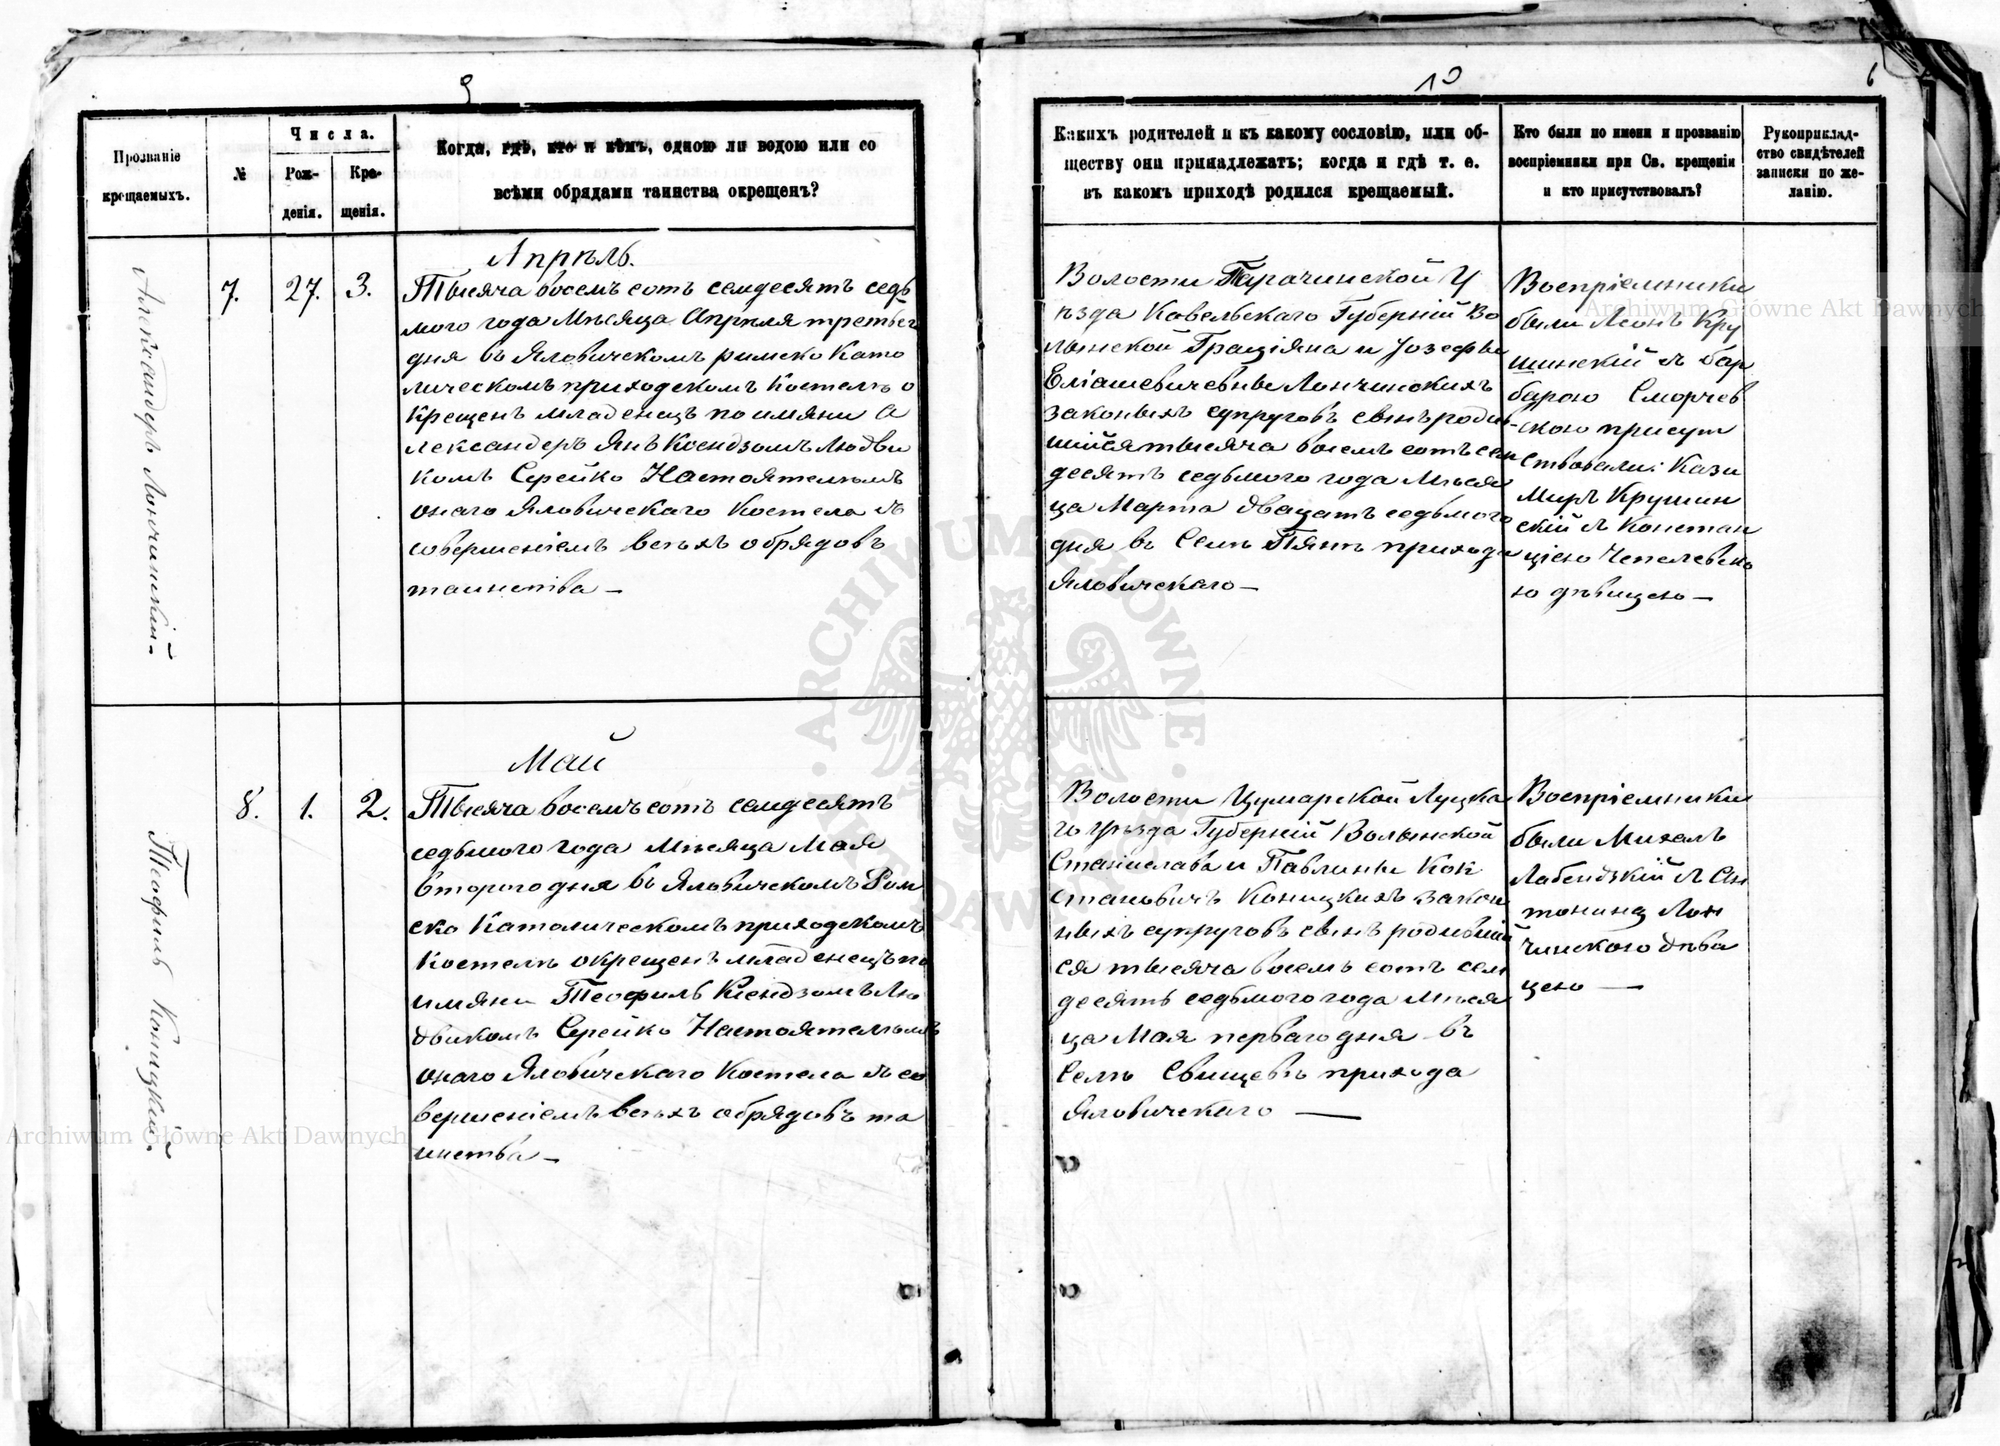 9
Прозваніе
крещаемыхъ.
№
Числа.
Рож-
денія.
Кре-
щенія.
Когда, гдѣ, кто и кѣмъ, одною ли водою или со
всѣми обрядами таинства окрещенъ?
Александеръ Лончинскій.
7.
27.
3.
Апрѣль.
Тысяча восемъ сотъ семдесятъ седь
мого года Мѣсяца Апрѣля третьего
дня въ Яловичскомъ римско Като
лическомъ приходскомъ Костелѣ о
крещенъ младенецъ по имяни А
лександеръ Янъ Ксендзомъ Людви
комъ Серейко Настоятелемъ
онаго Яловичскаго Костела съ
совершеніемъ всѣхъ обрядовъ
таинства —
Теофиль Коницкій.
8.
1.
2.
Май
Тысяча восемъ сотъ семдесятъ
седьмого года Мѣсяца Мая
второго дня въ Яловичскомъ Рим
ско Католическомъ приходскомъ
Костелѣ окрещенъ младенецъ по
имяни Теофиль Ксендзомъ Лю
двикомъ Серейко Настоятелемъ
онаго Яловичскаго Костела съ со
вершеніемъ всѣхъ обрядовъ та
инства —
10
6
Какихъ родителей и къ какому сословію, или об-
ществу они принадлежатъ; когда и гдѣ т. е.
въ какомъ приходѣ родился крещаемый.
Кто были по имени и прозванію
воспріемники при Св. крещеніи
и кто присутствовалъ?
Рукоприклад-
ство свидѣтелей
записки по же-
ланію.
Волости У
ѣзда Ковельскаго Губерній Во
лынской Граціяна и Іозефы
Еліашевичевны Лончинскихъ
законыхъ супруговъ сынъ родив
шійся тысяча восемъ сотъ сем
десятъ седьмого года Мѣся
ца Марта двацатъ седьмого
дня въ Селѣ прихода
Яловичскаго —
Воспріемники
были Леонъ Кру
шинскій съ Бар
барою Сморчев
скою присут
ствовали: Кази
миръ Крушин
скій съ Констан
ціею Чепелевско
ю дѣвицею —
Волости Луцка
го Уѣзда Губерній Волынской
Станислава и Павлины Кок
становичъ Коницкихъ закон
ныхъ супруговъ сынъ родивший
ся тысяча восемъ сотъ сем
десятъ седьмого года Мѣся
ца Мая перваго дня въ
Селѣ Свищевѣ прихода
Яловичскаго —
Воспріемники
были Михалъ
Лабендзкій съ Ан
тониною Лон
чинского дѣви
цею —
ARCHIWUM GŁÓWNE AKT DAWNYCH
Archiwum Główne Akt Dawnych
Archiwum Główne Akt Dawnych